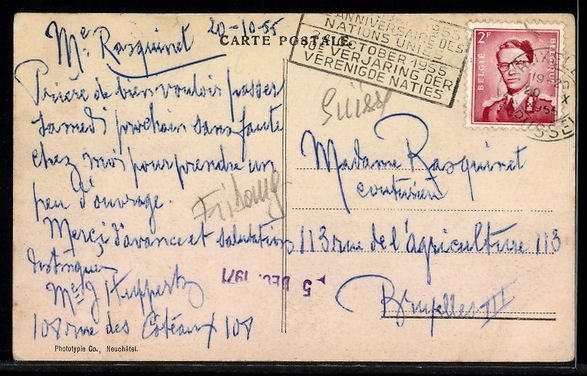 Me Rasquinet 20-10-55
Prière de bien vouloir passer
samedi prochain sans faute
chez moi pour prendre un
peu d'ouvrage.
Merci d'avance et salutations
distinguées
J Huppertz
108 rue des Coteaux 108
Phototypie Co., Neuchâtel.
CARTE POSTALE
ANNIVERSAIRE DES
NATIONS UNIES
OCTOBER 1955
VERJARING DER
VERENIGDE NATIES
2F
BELGIE
BELGIQUE
20
X
1955
Suisse
Fribourg
Madame Rasquinet
couturière
113 rue de l'agriculture 113
Bruxelles III
5 DEC. 1971